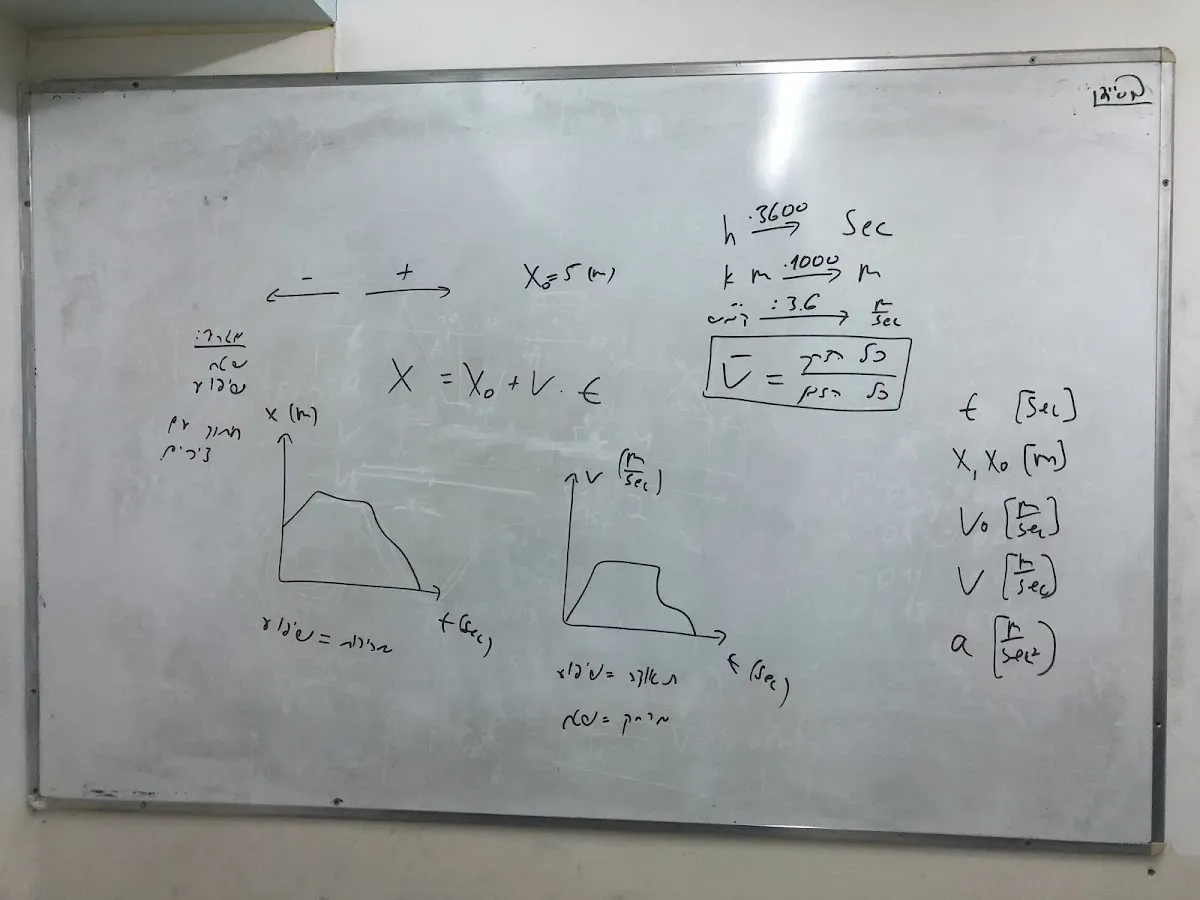 h ·3600→ Sec
km ·1000→ m
קמ"ש :3.6→ m/sec
V̄ = כל הדרך / כל הזמן
- +
X₀=5 (m)
X = X₀ + V · t
שטח
שיפוע
חיתוך עם
צירים
X (m)
t (sec)
מהירות = שיפוע
V (m/sec)
t (sec)
תאוצה = שיפוע
מרחק = שטח
t [sec]
X, X₀ [m]
V₀ [m/sec]
V [m/sec]
a [m/sec²]